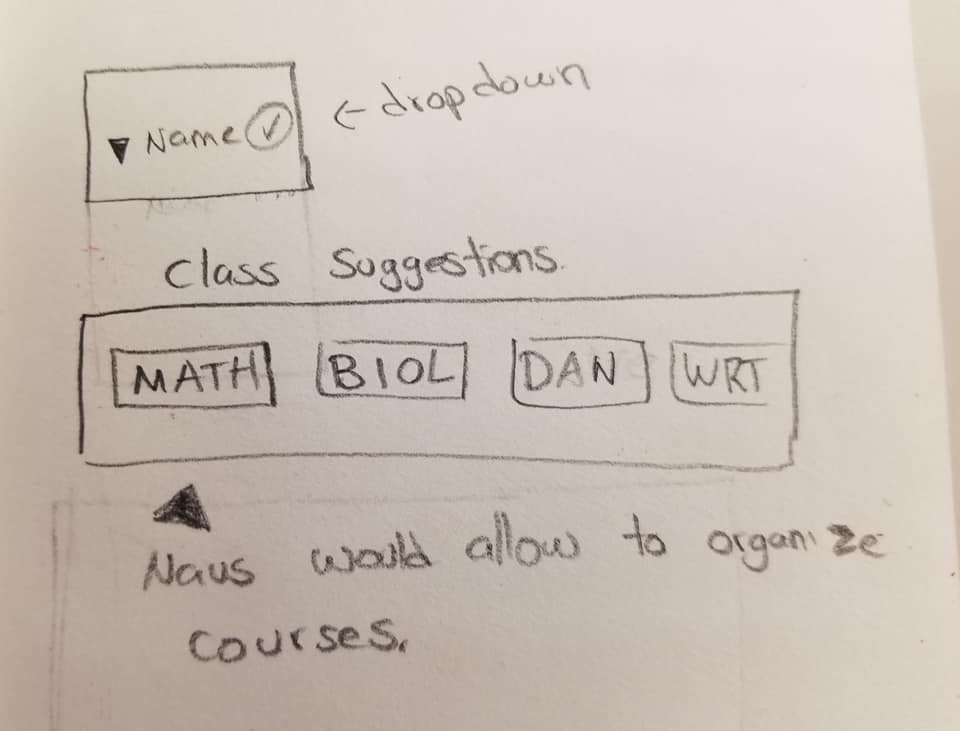 Name
← dropdown
Class Suggestions.
MATH BIOL DAN WRT
Navs would allow to organize
courses.